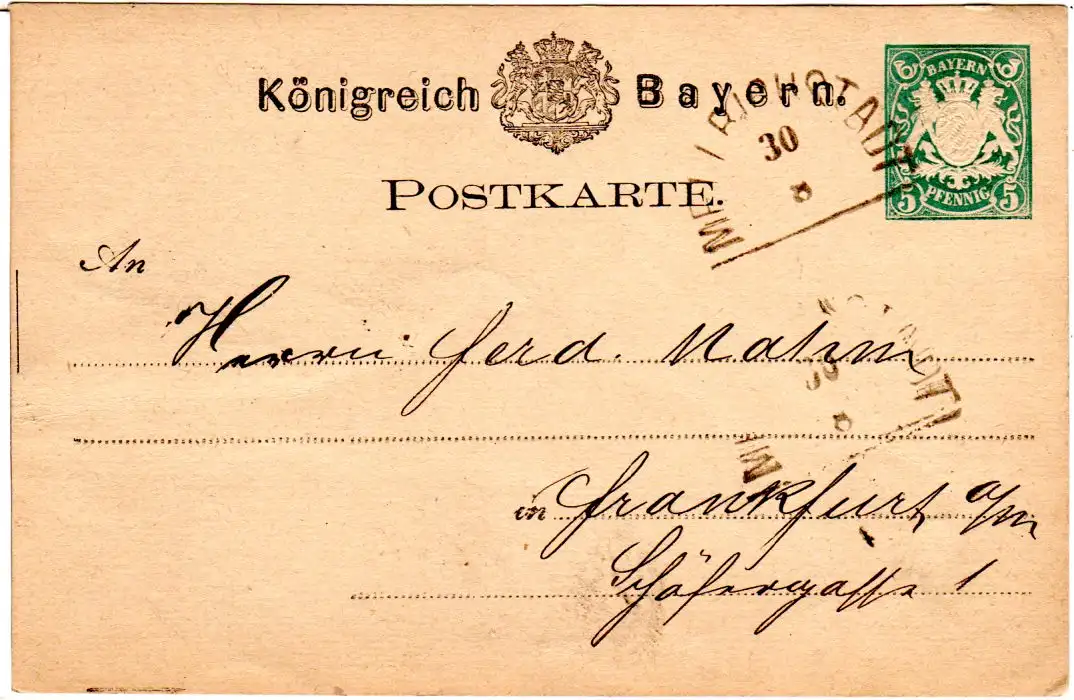 Königreich Bayern.
BAYERN
5 PFENNIG 5
POSTKARTE.
30
8
An
Herrn Ferd.
30
8
in Frankfurt a/m
Schäfergasse 1